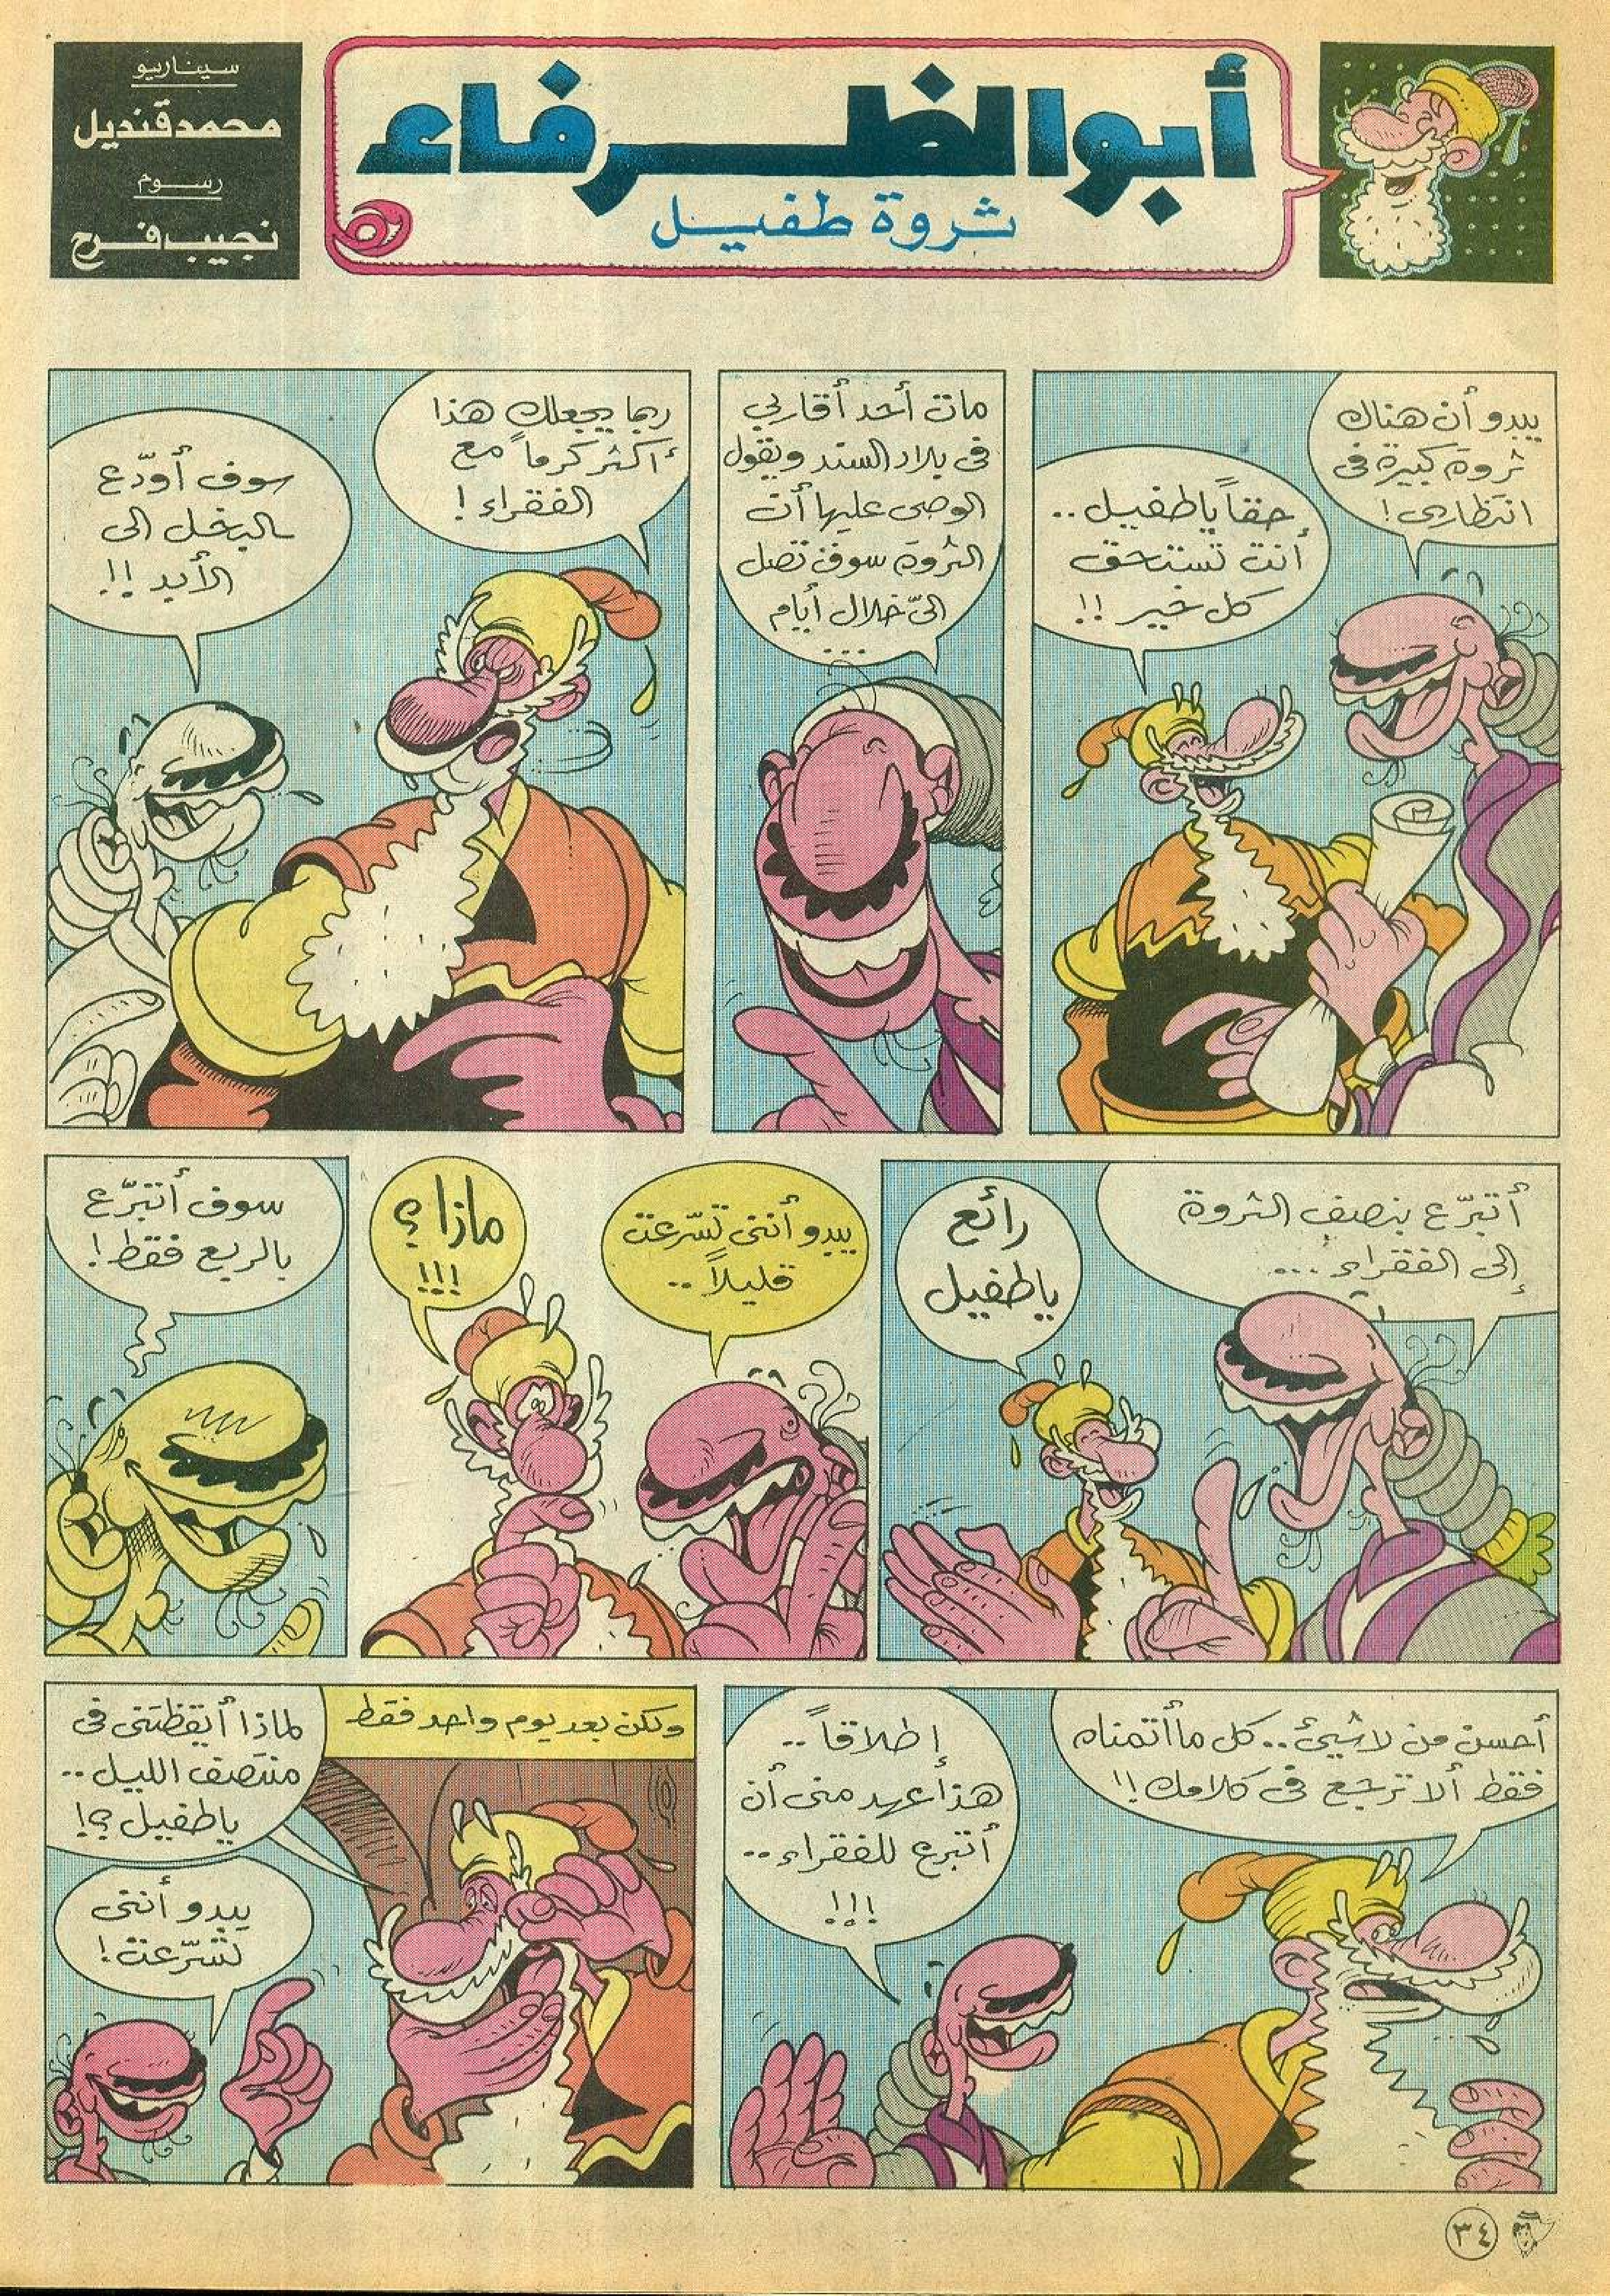 أبو الظرفاء
ثروة طفيل
سيناريو
محمد قنديل
رسوم
نجيب فرح
يبدو أن هناك
ثروة كبيرة فى
انتظارى !
حقاً ياطفيل ..
أنت تستحق
كل خير !!
مات أحد أقاربي
فى بلاد السند ويقول
الوصى عليها أن
الثروة سوف تصل
الىّ خلال أيام
...
ربما يجعلك هذا
أكثر كرماً مع
الفقراء !
سوف أودّع
البخل الى
الأبد !!
أتبرّع بنصف الثروة
إلى الفقراء ...
رائع
ياطفيل
يبدو أننى تسّرعت
قليلاً ..
ماذا ؟
!!!
سوف أتبرّع
بالربع فقط !
أحسن من لاشيئ .. كل ماأتمناه
فقط ألا ترجع فى كلامك !!
إطلاقاً ..
هذا عهد منى أن
أتبرع للفقراء ..
!!!
ولكن بعد يوم واحد فقط
لماذا أيقظتنى فى
منتصف الليل ..
ياطفيل ؟!
يبدو أننى
تسّرعت !
٣٤